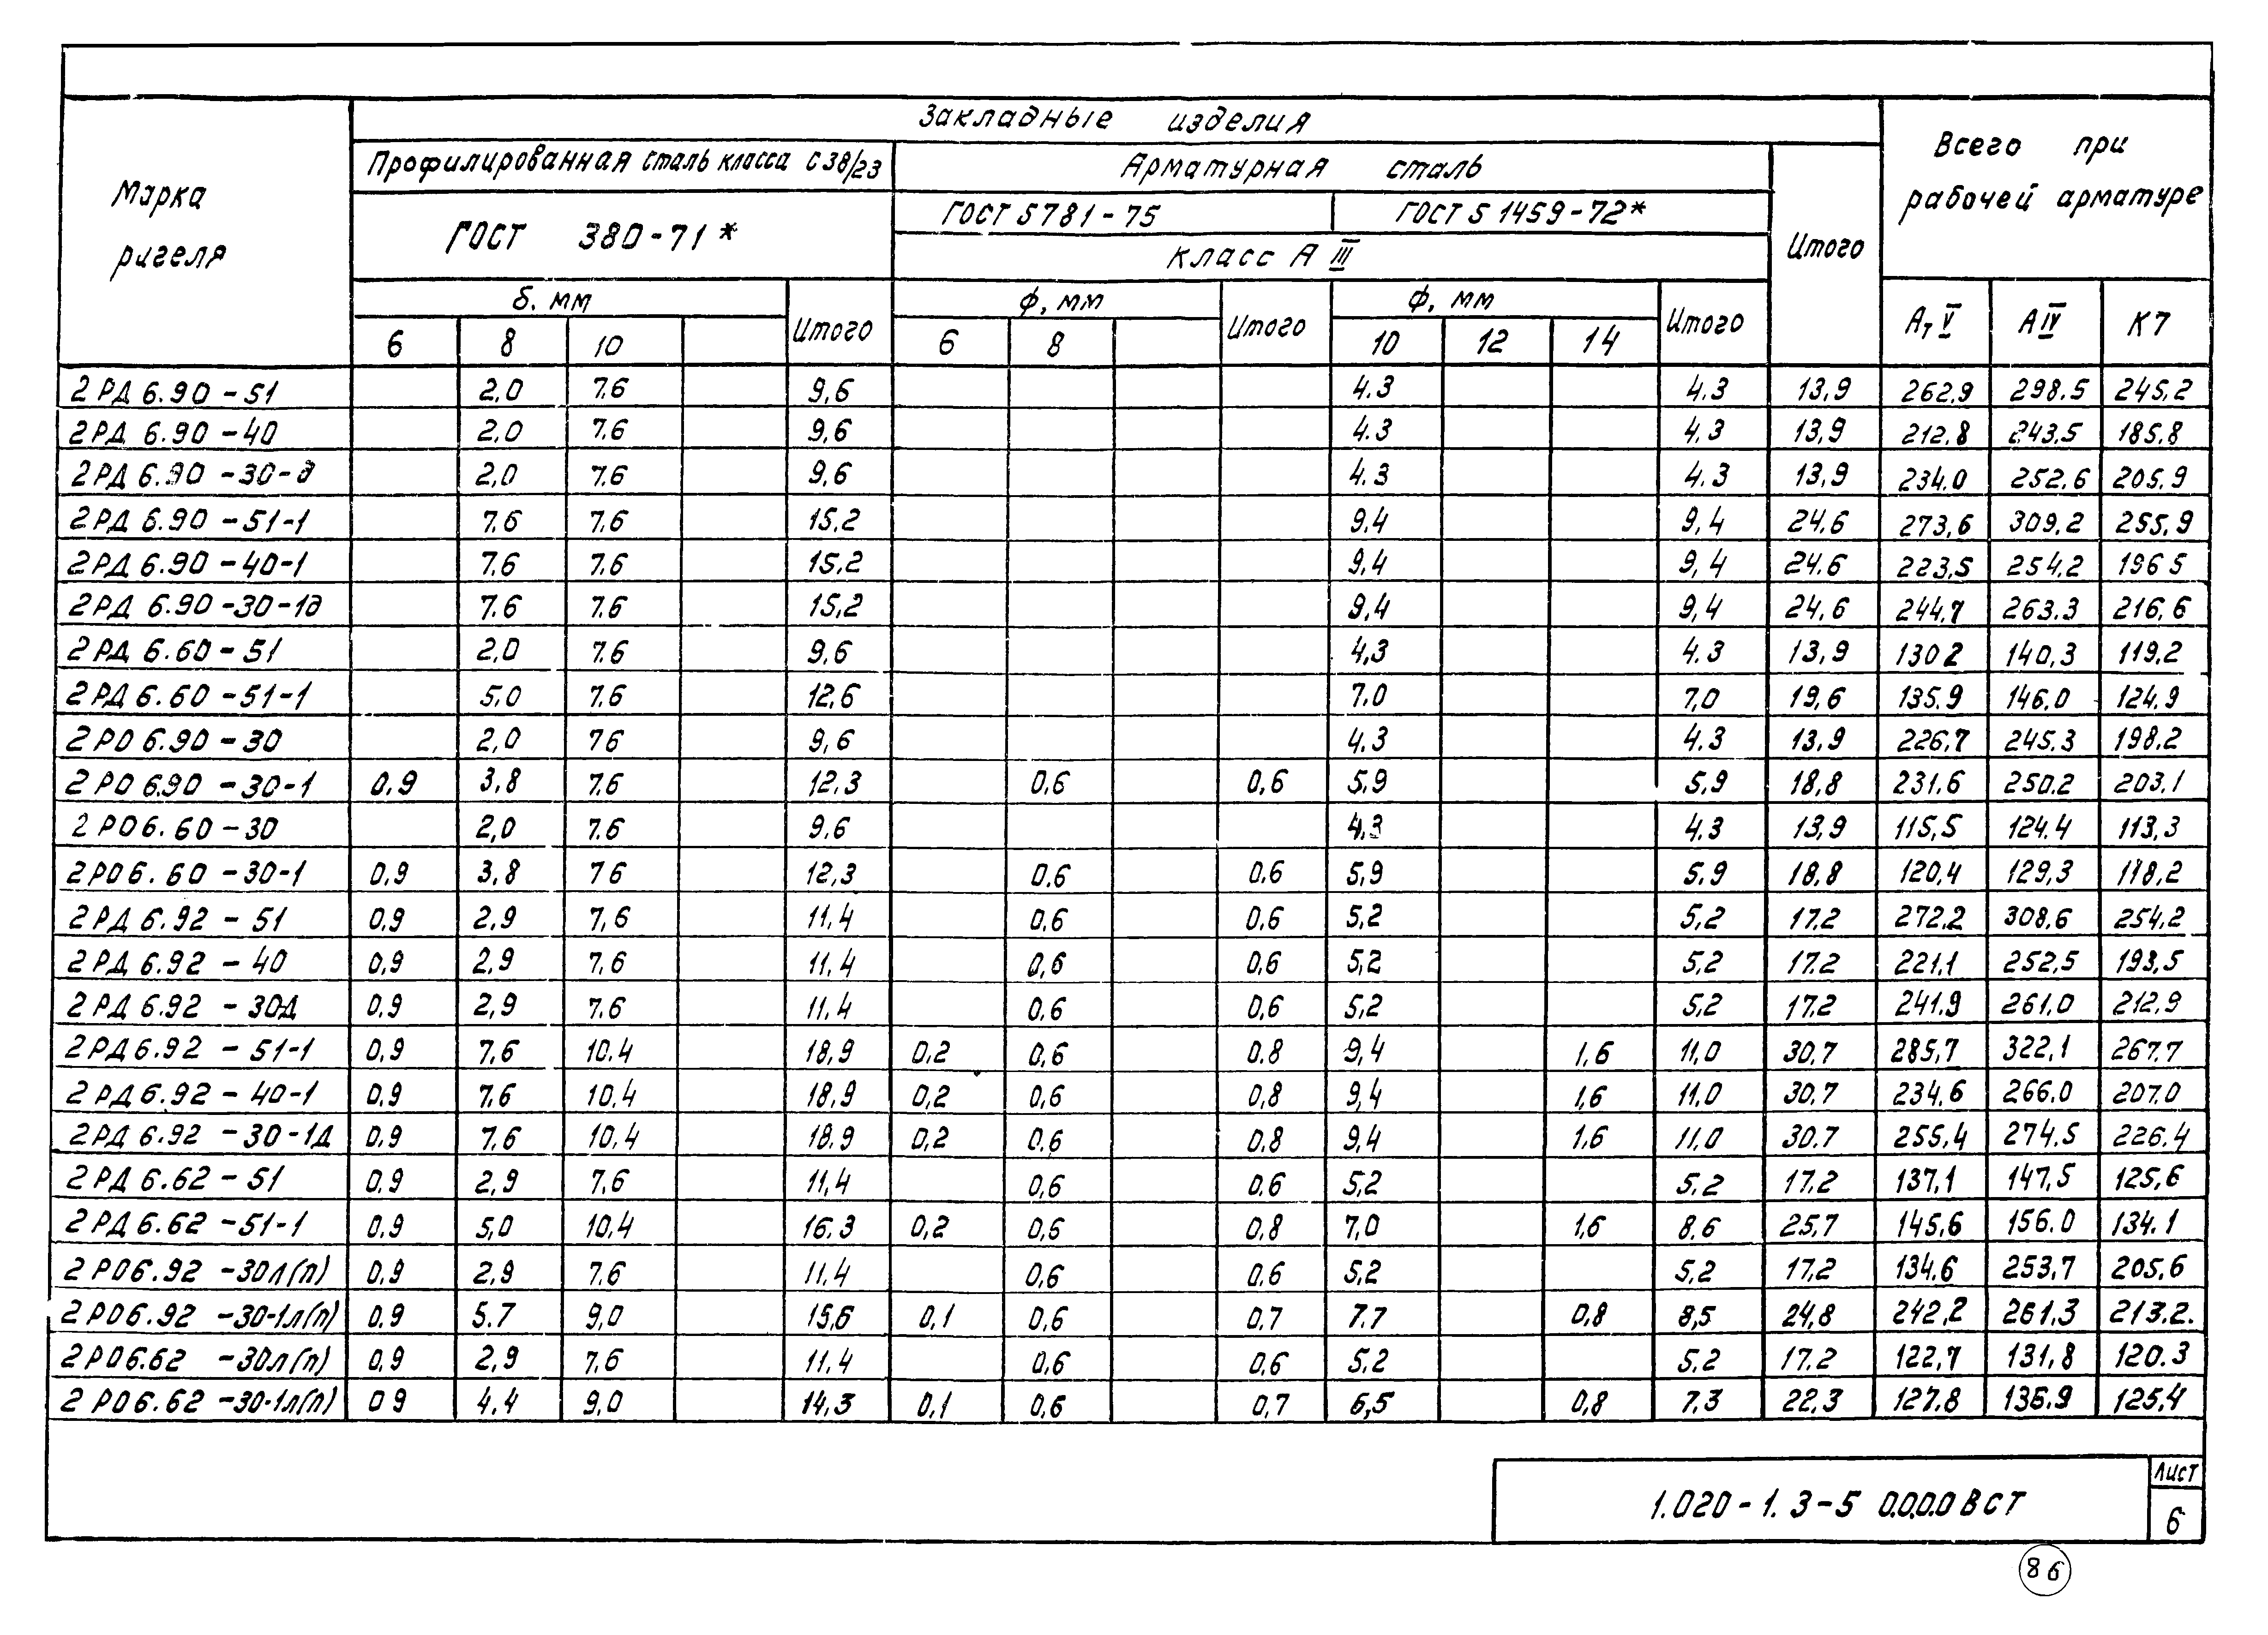 Марка ригеля
Закладные изделия
Всего при рабочей арматуре
Профилированная сталь класса С38/23
Арматурная сталь
Итого
ГОСТ 380-71*
ГОСТ 5781-75
ГОСТ 51459-72*
Класс А III
δ. мм
Итого
ф, мм
Итого
ф, мм
Итого
Ат V
А IV
К7
6 8 10
6 8
10 12 14
2 РД 6.90-51 2,0 7.6 9,6 4.3 4.3 13,9 262,9 298.5 245,2
2 РД 6.90-40 2,0 7.6 9,6 4.3 4.3 13,9 212.8 243.5 185.8
2 РД 6.90-30-д 2,0 7.6 9,6 4.3 4.3 13,9 234.0 252.6 205.9
2 РД 6.90-51-1 7.6 7.6 15.2 9.4 9,4 24.6 273,6 309,2 255,9
2 РД 6.90-40-1 7.6 7.6 15.2 9,4 9,4 24.6 223,5 254,2 196 5
2 РД 6.90-30-1д 7.6 7.6 15,2 9,4 9,4 24,6 244,7 263.3 216,6
2 РД 6.60-51 2,0 7.6 9,6 4,3 4.3 13,9 130 2 140,3 119,2
2 РД 6.60-51-1 5,0 7.6 12,6 7.0 7,0 19,6 135.9 146.0 124,9
2 РО 6.90-30 2,0 76 9,6 4.3 4.3 13.9 226,7 245.3 198.2
2 РО 6.90-30-1 0,9 3,8 7.6 12.3 0,6 0,6 5.9 5,9 18,8 231.6 250.2 203,1
2 РО6.60-30 2,0 7.6 9.6 4.3 4.3 13,9 115,5 124.4 113,3
2 РО6.60-30-1 0,9 3,8 76 12,3 0.6 0.6 5,9 5.9 18,8 120,4 129,3 118,2
2 РД 6.92-51 0,9 2,9 7,6 11,4 0,6 0,6 5,2 5,2 17.2 272,2 308,6 254,2
2 РД 6.92-40 0,9 2,9 7,6 11,4 0,6 0,6 5,2 5,2 17.2 221,1 252,5 193,5
2 РД 6.92-30Д 0.9 2,9 7.6 11,4 0,6 0,6 5,2 5,2 17.2 241.9 261,0 212,9
2 РД 6.92-51-1 0,9 7,6 10,4 18,9 0,2 0,6 0.8 9,4 1,6 11,0 30,7 285,7 322,1 267.7
2 РД 6.92-40-1 0.9 7.6 10.4 18,9 0,2 0,6 0,8 9,4 1,6 11,0 30,7 234.6 266.0 207.0
2 РД 6.92-30-1Д 0.9 7,6 10,4 18.9 0,2 0.6 0.8 9,4 1,6 11,0 30.7 255,4 274.5 226.4
2 РД 6.62-51 0.9 2,9 7,6 11,4 0,6 0.6 5,2 5,2 17.2 137,1 147,5 125,6
2 РД 6.62-51-1 0.9 5,0 10.4 16.3 0,2 0,6 0,8 7,0 1,6 8,6 25,7 145,6 156.0 134.1
2 РО6.92-30Л(п) 0.9 2,9 7.6 11.4 0,6 0.6 5,2 5,2 17,2 134.6 253,7 205,6
2 РО6.92-30-1л(п) 0.9 5.7 9,0 15,6 0,1 0,6 0.7 7.7 0,8 8,5 24,8 242,2 261.3 213.2.
2 РО6.62-30л(п) 0,9 2,9 7,6 11.4 0,6 0,6 5.2 5.2 17.2 122,7 131,8 120.3
2 РО6.62-30-1л(п) 0 9 4.4 9,0 14,3 0,1 0,6 0,7 6,5 0,8 7.3 22,3 127.8 136.9 125,4
1.020-1.3-5 0.0.0.0 ВСТ
Лист
6
86